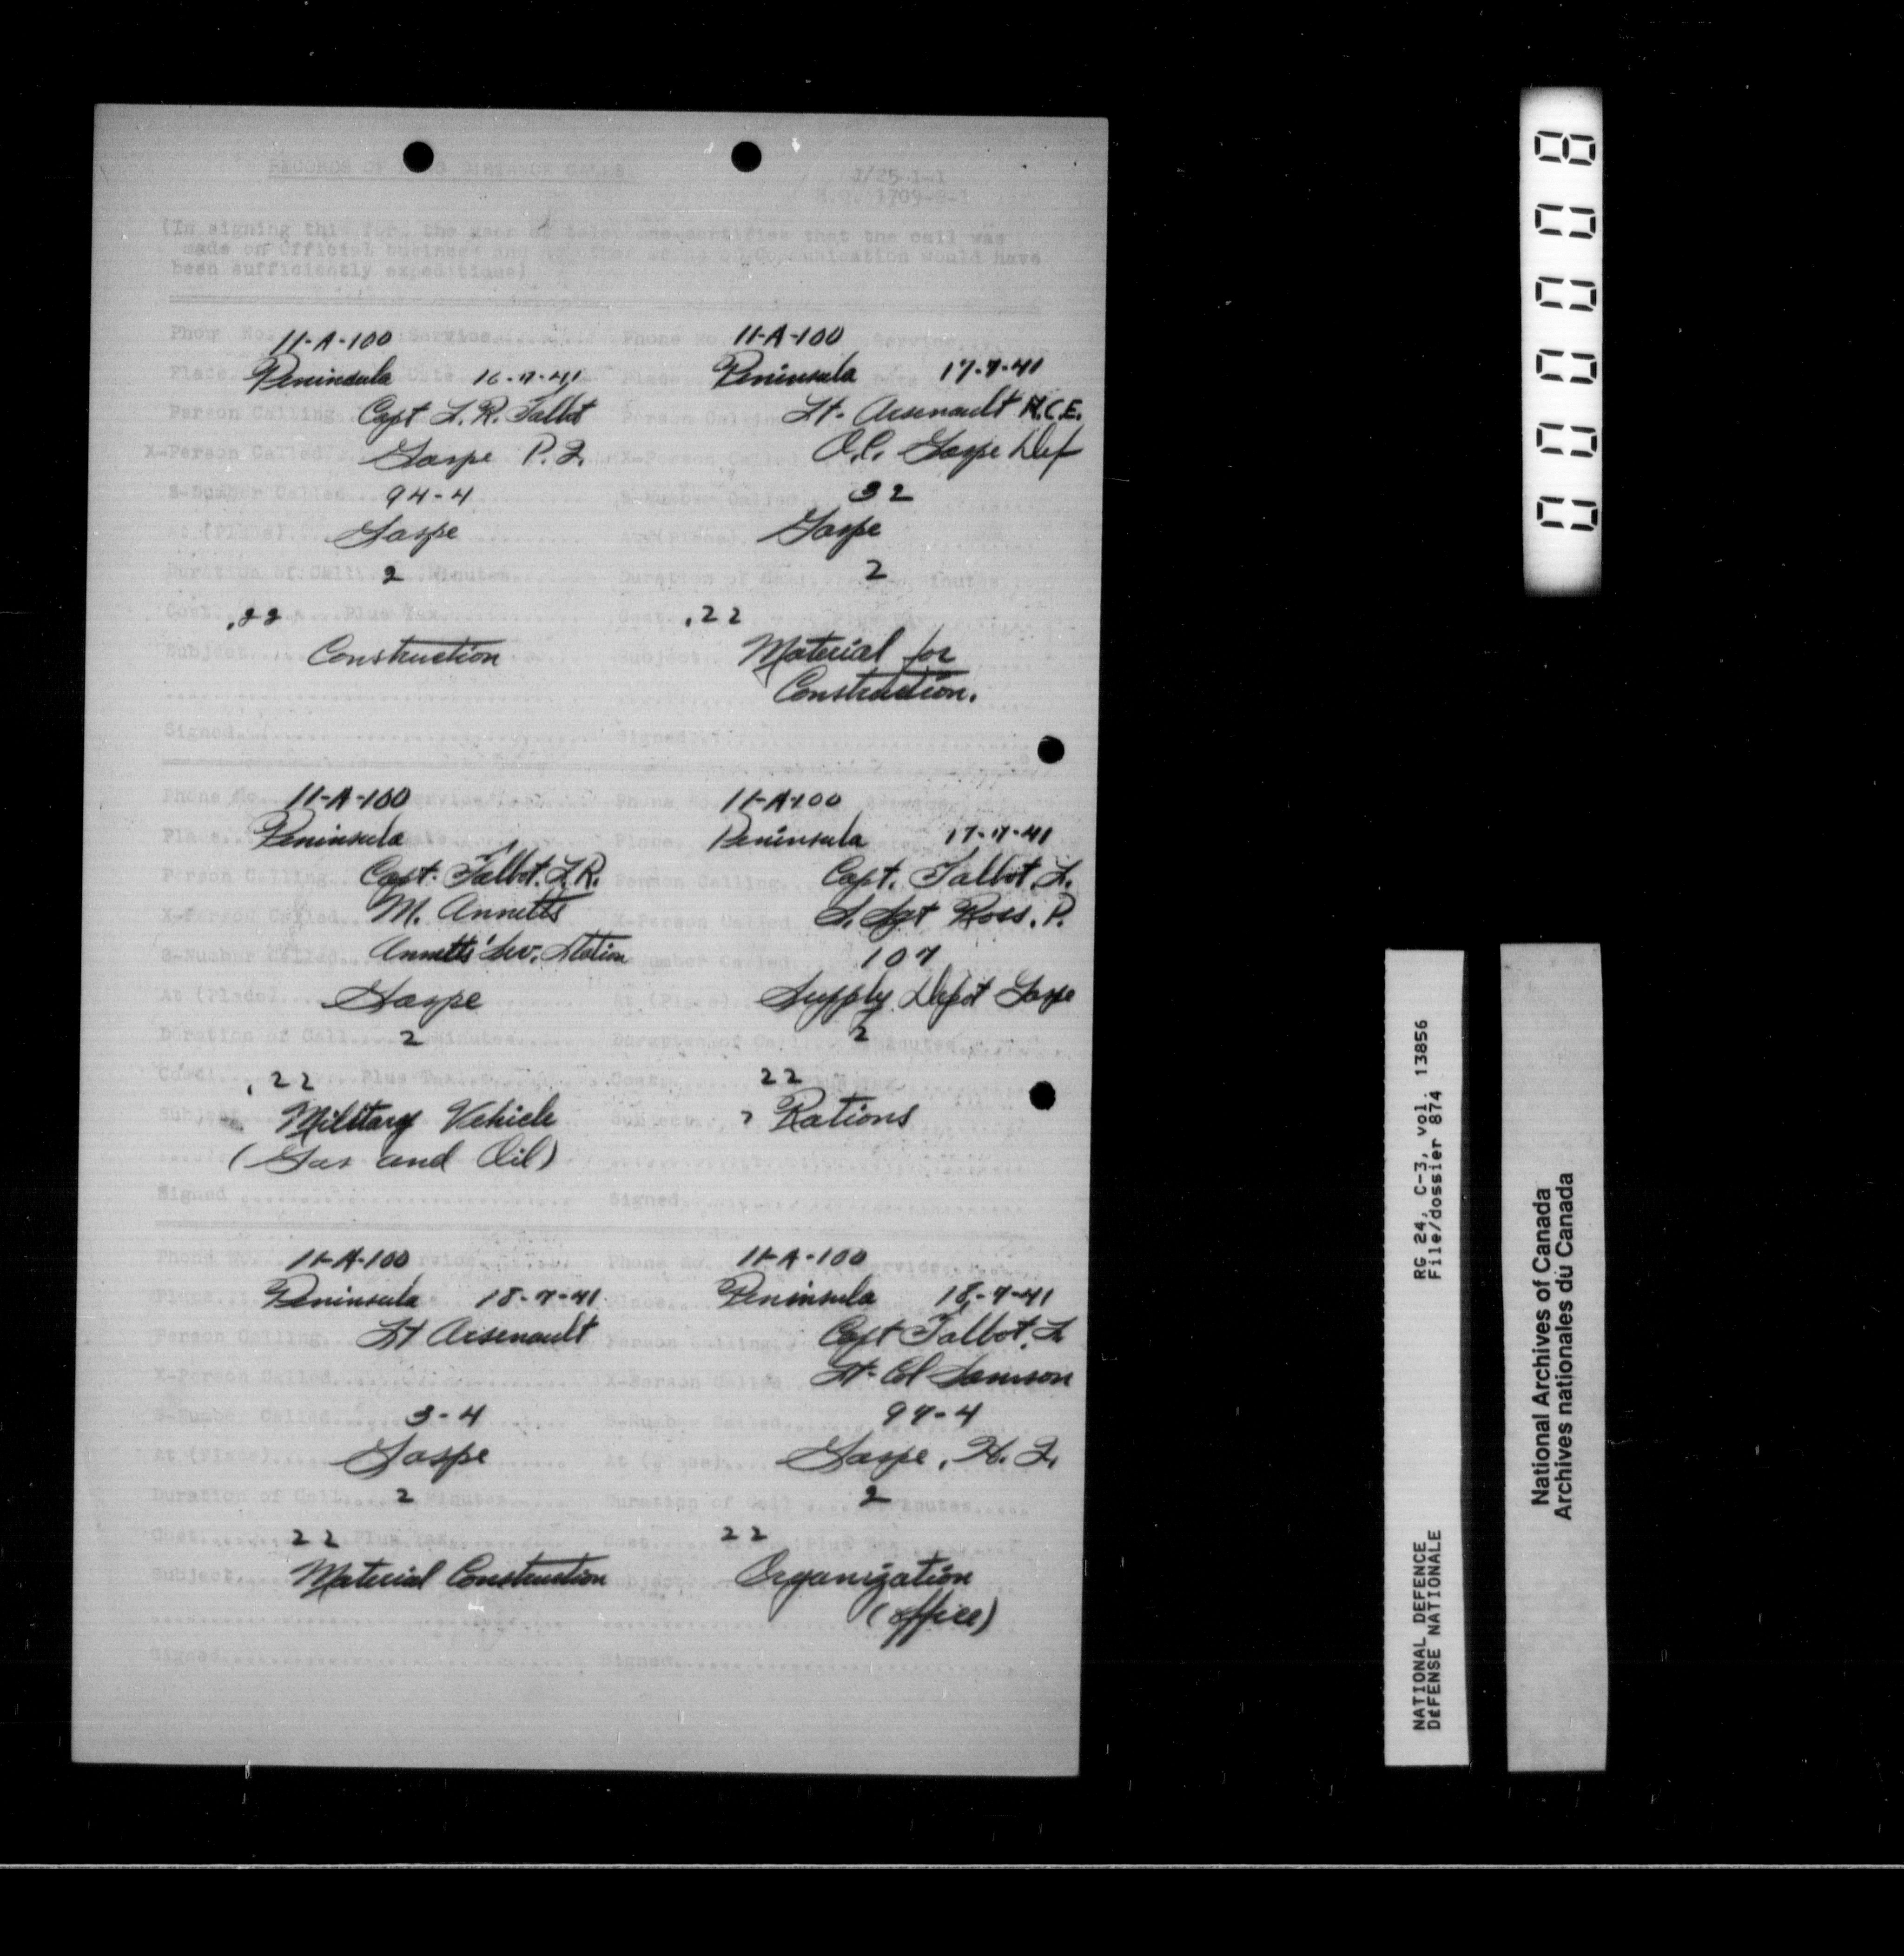 RECORDS OF LONG DISTANCE CALLS.
J/25-1-1
H.Q. 1709-2-1
(In signing this form the user of telephone certifies that the call was
made on Official business and no other means of Communication would have
been sufficiently expeditious)
Phone No. 11-A-100 Service
Place. Peninsula Date 16-7-41
Person Calling. Capt L. R. Talbot
X-Person Called. Gaspe P. Q.
S-Number Called. 94-4
At (Place). Gaspe
Duration of Call. 2 Minutes
Cost. .22 Plus Tax
Subject. Construction
Signed.
Phone No. 11-A-100 Service
Place. Peninsula Date 17-7-41
Person Calling Lt. Arsenault R.C.E.
X-Person Called. O.C. Gaspe Def
S-Number Called. 32
At (Place). Gaspe
Duration of Call. 2 Minutes
Cost. .22 Plus Tax
Subject. Material for
Construction.
Signed.
Phone No. 11-A-100 Service
Place. Peninsula Date
Person Calling. Capt. Talbot. L.R.
X-Person Called. M. Annetts
S-Number Called. Annetts' Ser. Station
At (Place). Gaspe
Duration of Call. 2 Minutes
Cost. .22 Plus Tax
Subject. Military Vehicle
(Gas and Oil)
Signed
Phone No. 11-A-100 Service
Place. Peninsula Date 17-7-41
Person Calling. Capt. Talbot. L.
X-Person Called. S. Sgt Ross. P.
S-Number Called. 107
At (Place). Supply Depot Gaspe
Duration of Call. 2 Minutes
Cost. 22 Plus Tax
Subject. Rations
Signed
Phone No. 11-A-100 Service
Place. Peninsula Date 18-7-41
Person Calling. Lt Arsenault
X-Person Called.
S-Number Called. 3-4
At (Place). Gaspe
Duration of Call. 2 Minutes
Cost. 22 Plus Tax
Subject. Material Construction
Signed.
Phone No. 11-A-100 Service
Place. Peninsula 18-7-41
Person Calling. Capt Talbot. L
X-Person Called. Lt-Col Samson
S-Number Called. 97-4
At (Place). Gaspe, H. Q.
Duration of Call 2 Minutes
Cost. 22 Plus Tax
Subject. Organization
(office)
Signed.
00000 8
RG 24, C-3, vol. 13856
File/dossier 874
NATIONAL DEFENCE
DÉFENSE NATIONALE
National Archives of Canada
Archives nationales du Canada